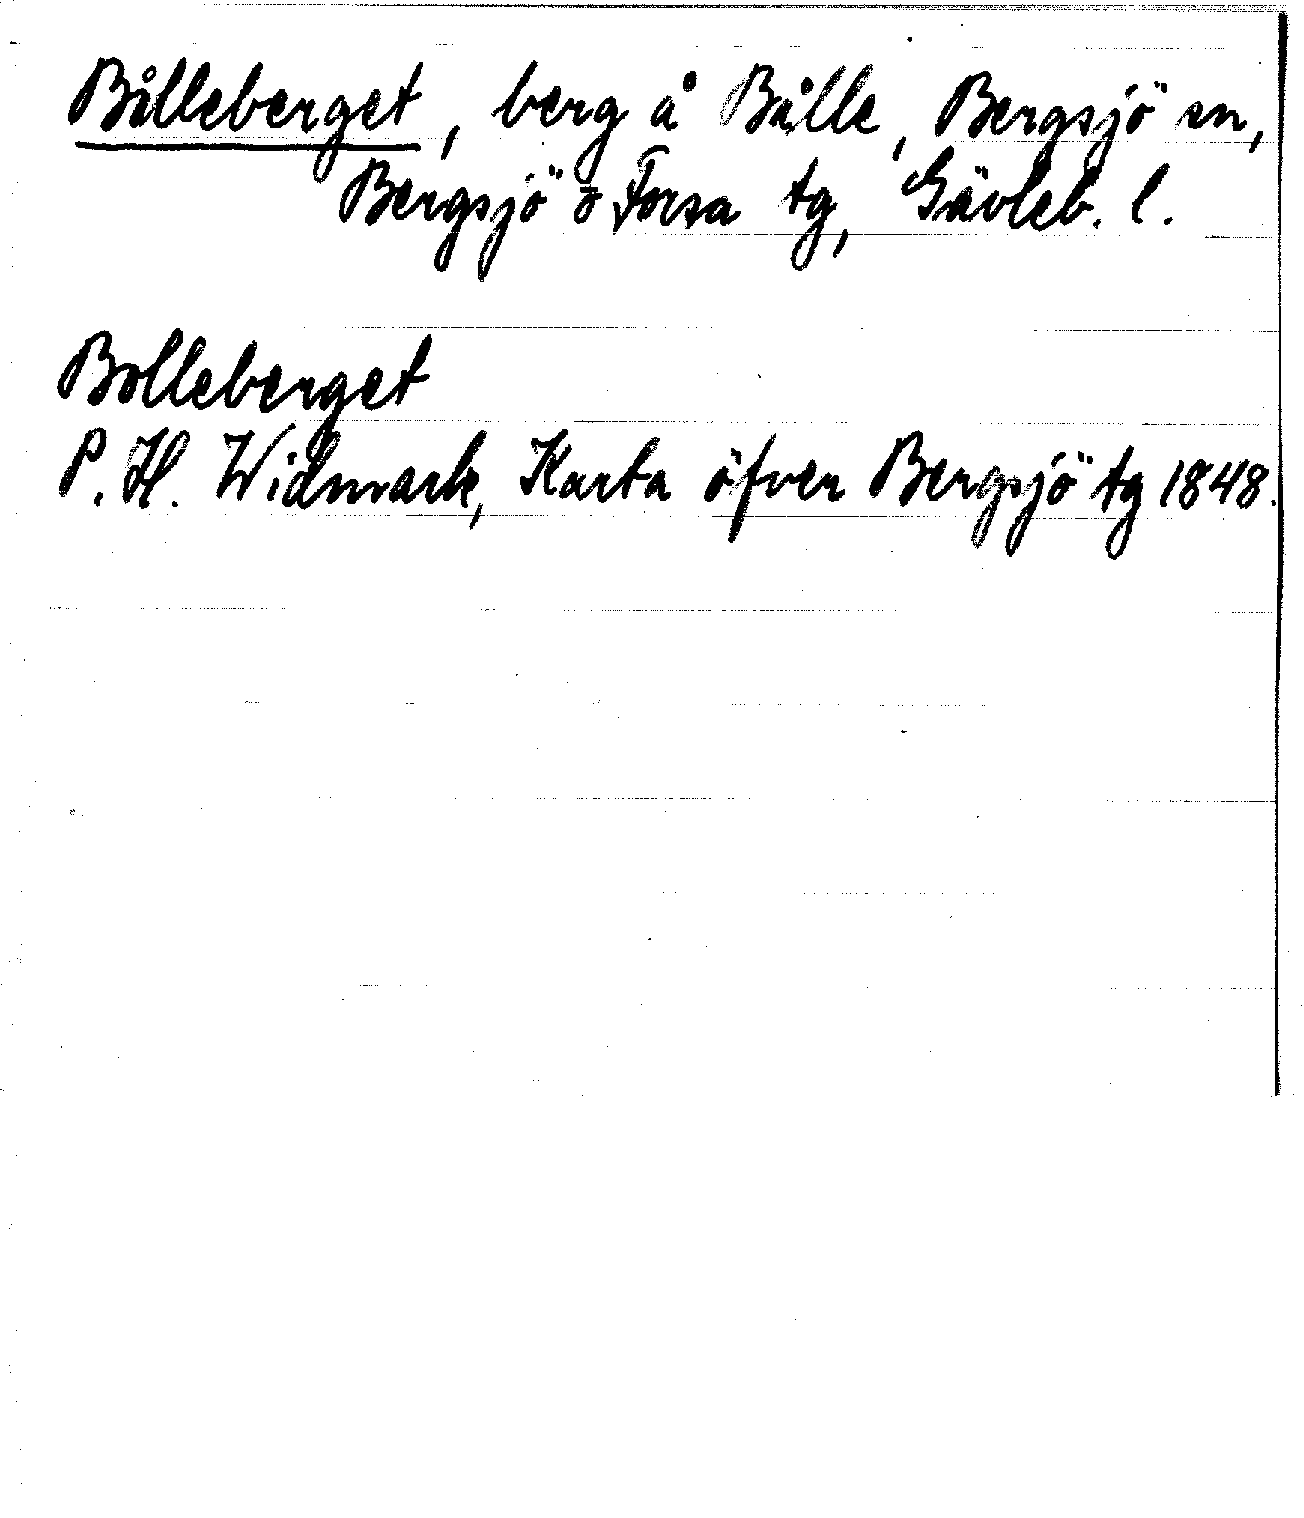 Bålleberget, berg å Bålle, Bergsjö sn,
Bergsjö o Forsa tg, Gävleb. l.
Bolleberget
P. H. Widmark, Karta öfver Bergsjö tg 1848.